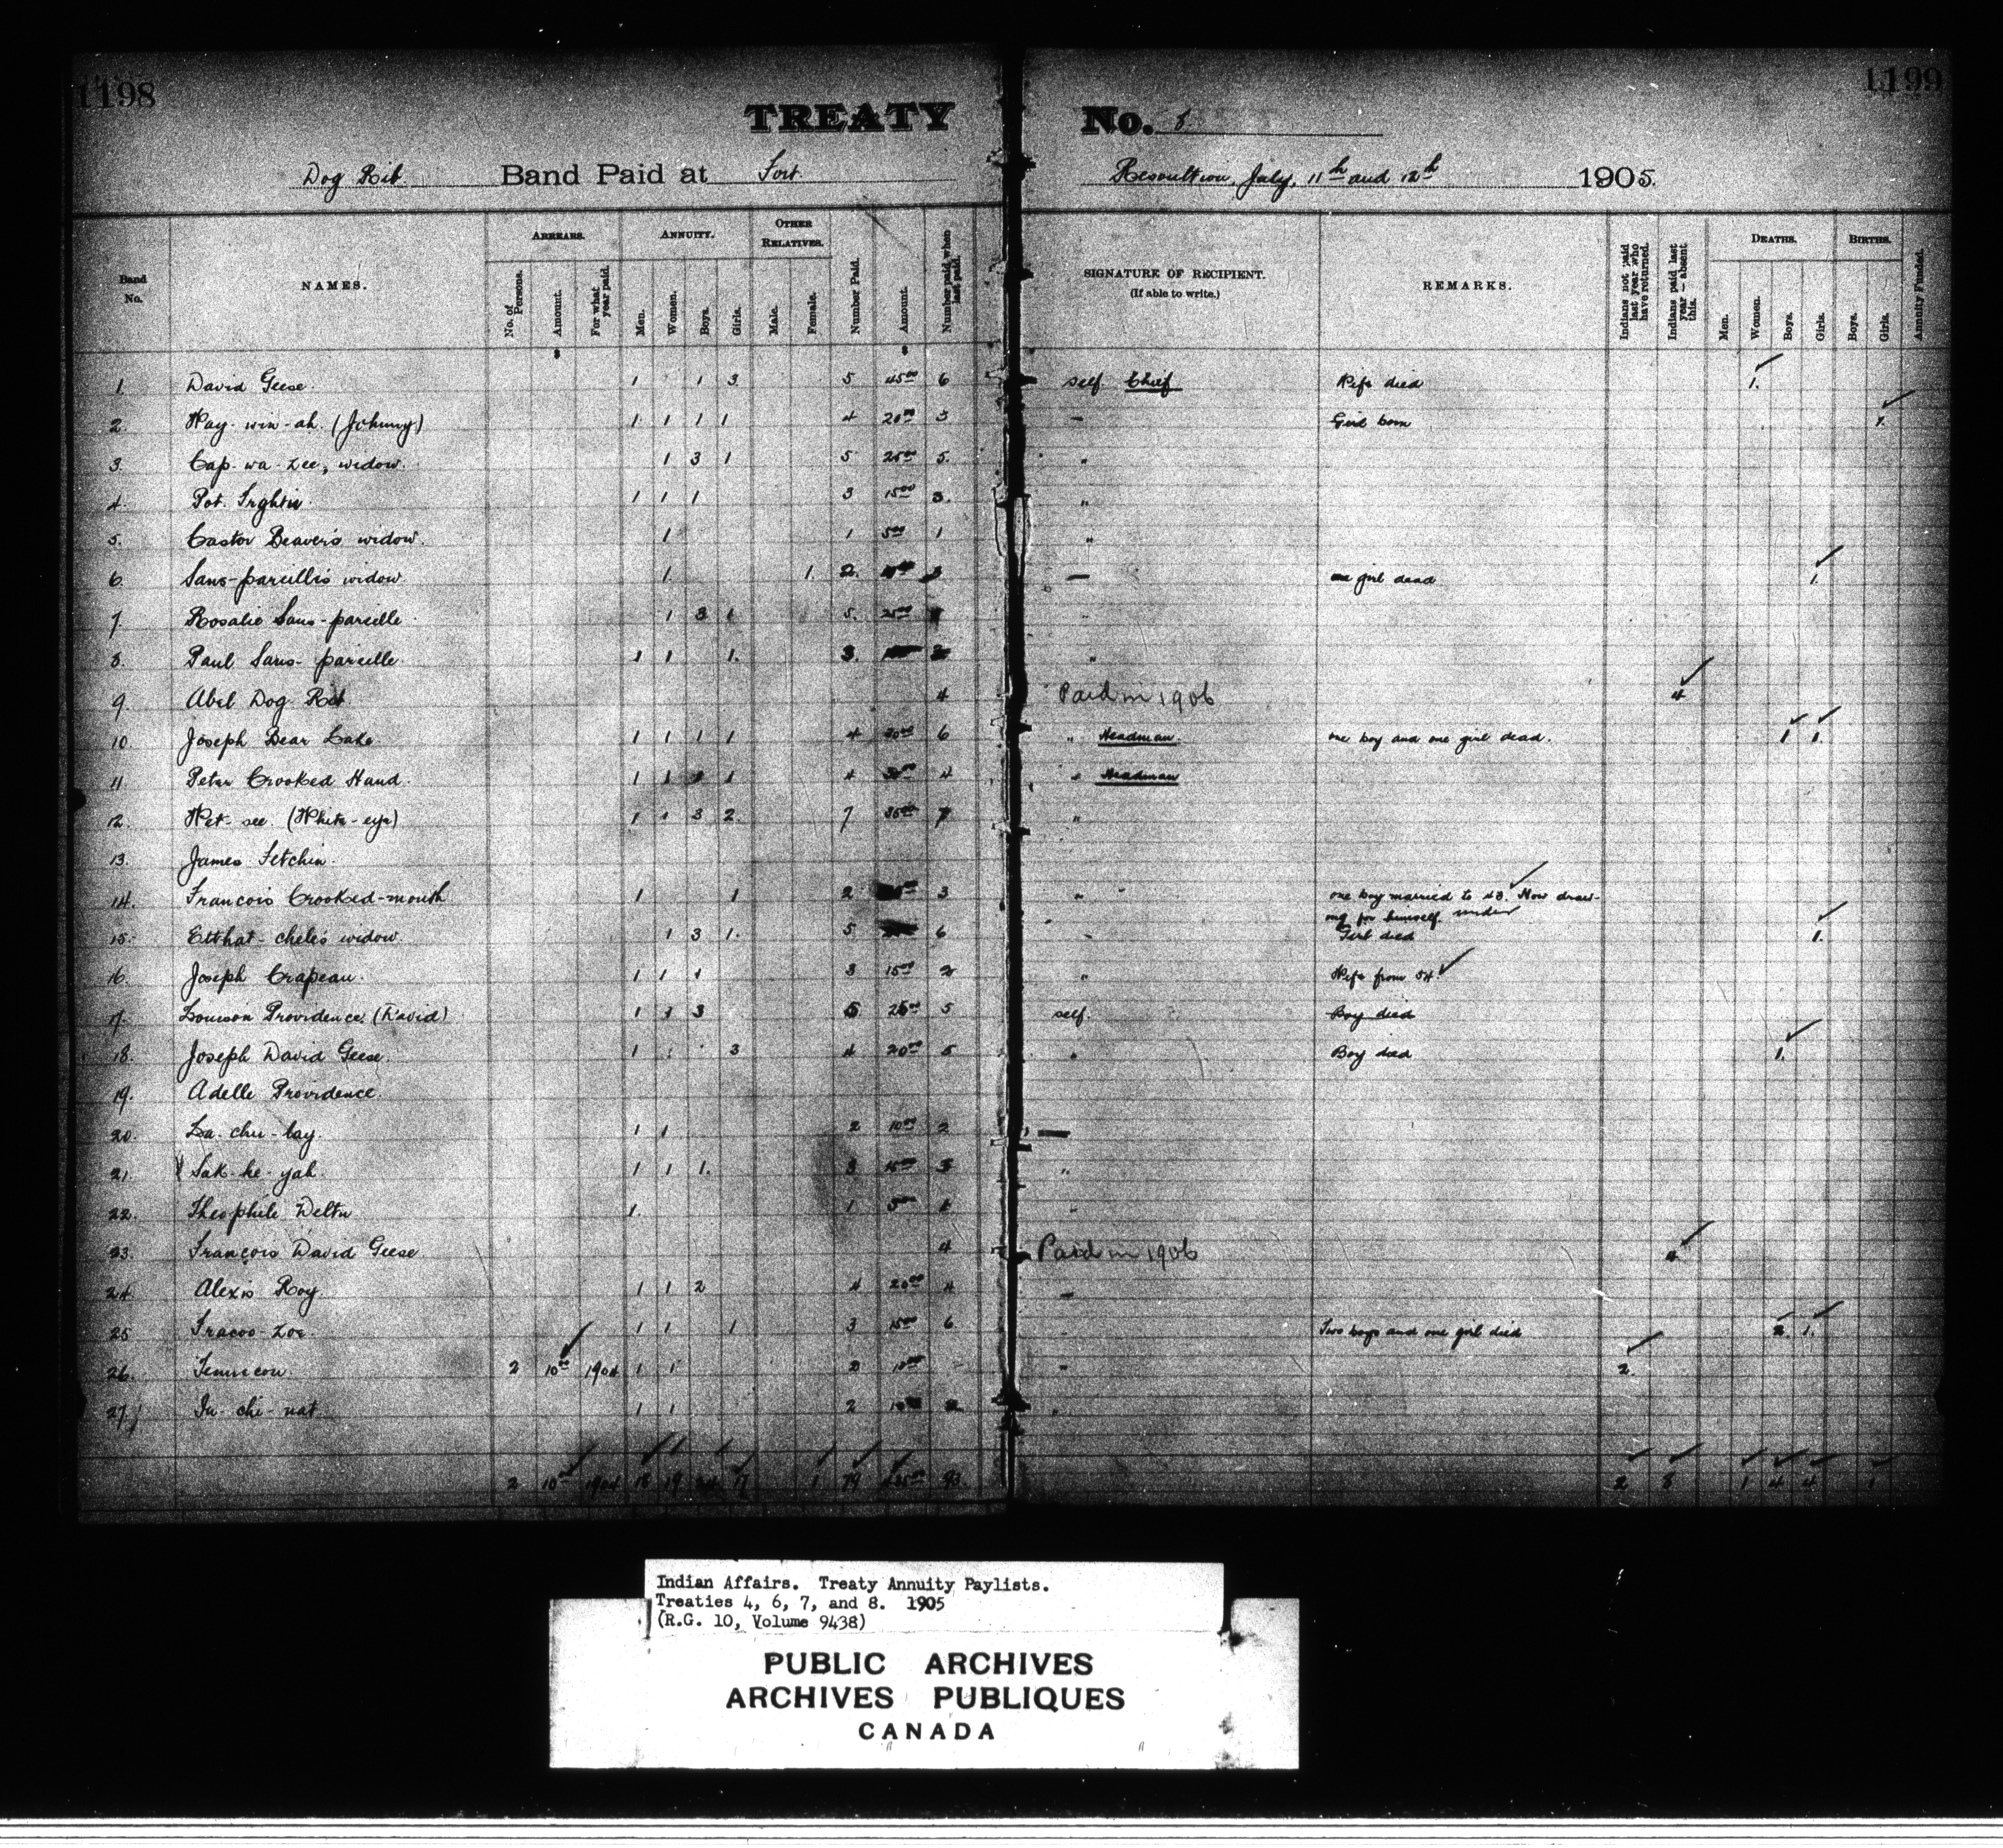 1198
1199
TREATY No. 8
Dog Rib Band Paid at Fort Resoultion, July, 11th and 12th 1905.
Band No. NAMES. ARREARS. No. of Persons. Amount. For what year paid. ANNUITY. Men. Women. Boys. Girls. OTHER RELATIVES. Male. Female. Number Paid. Amount. Number paid when last paid. SIGNATURE OF RECIPIENT. (If able to write.) REMARKS. Indians not paid last year who have returned. Indians paid last year — absent this. DEATHS. Men. Women. Boys. Girls. BIRTHS. Boys. Girls. Annuity Funded.
1. David Geese. 1 1 3 5 45.00 6 self. Chief Wife died 1.
2. Way-win-ah. (Johnny) 1 1 1 1 4 20.00 3 Girl born 1.
3. Cap-wa-zee, widow. 1 3 1 5 25.00 5. "
4. Pot. 1 1 1 3 15.00 3. "
5. Castor Beaver's widow. 1 1 5.00 1 "
6. Sans-pareille's widow 1. 1. 2. one girl dead 1.
7. Rosalie Sans-pareille 1 3 1 5. 25.00
8. Paul Sans-pareille 1 1 1. 3. "
9. Abel Dog Rib 4 Paid in 1906 4
10. Joseph Bear Lake. 1 1 1 1 4 30.00 6 " Headman. one boy and one girl dead. 1 1.
11. Peter Crooked Hand. 1 1 1 1 4 30.00 4 " Headman
12. Wet-see. (White-eye) 1 1 3 2. 7 35.00 7 "
13. James Fetchin.
14. Francois Crooked-mouth 1 1 2 3 " one boy married to 43. Now draw-
ing for himself. under
15. Etthat-chele's widow 1 3 1. 5 6 Girl died 1.
16. Joseph Crapeau. 1 1 1 3 15.00 2 " Wife from 54.
17. Louison Providence. (David) 1 1 3 5 25.00 5 self. Boy died
18. Joseph David Geese. 1 3 4 20.00 5 " Boy died 1.
19. Adelle Providence.
20. La-chu-lay. 1 1 2 10.00 2
21. Sak-he-yah. 1 1 1. 3 15.00 3 "
22. Theophile Weltu 1. 1 5.00 1
23. François David Geese 4 Paid in 1906 4
24. Alexis Roy. 1 1 2 4 20.00 4
25 Fracoo-zoe. 1 1 1 3 15.00 6 Two boys and one girl died 2. 1.
26. 2 10.00 1904 1 1 2 10.00 " 2.
27. In-chi-nat. 1 1 2 "
2 10.00 1904 18 19 24 17 1 79 93. 2 8 1 4 4 1
Indian Affairs. Treaty Annuity Paylists.
Treaties 4, 6, 7, and 8. 1905
(R.G. 10, Volume 9438)
PUBLIC ARCHIVES
ARCHIVES PUBLIQUES
CANADA